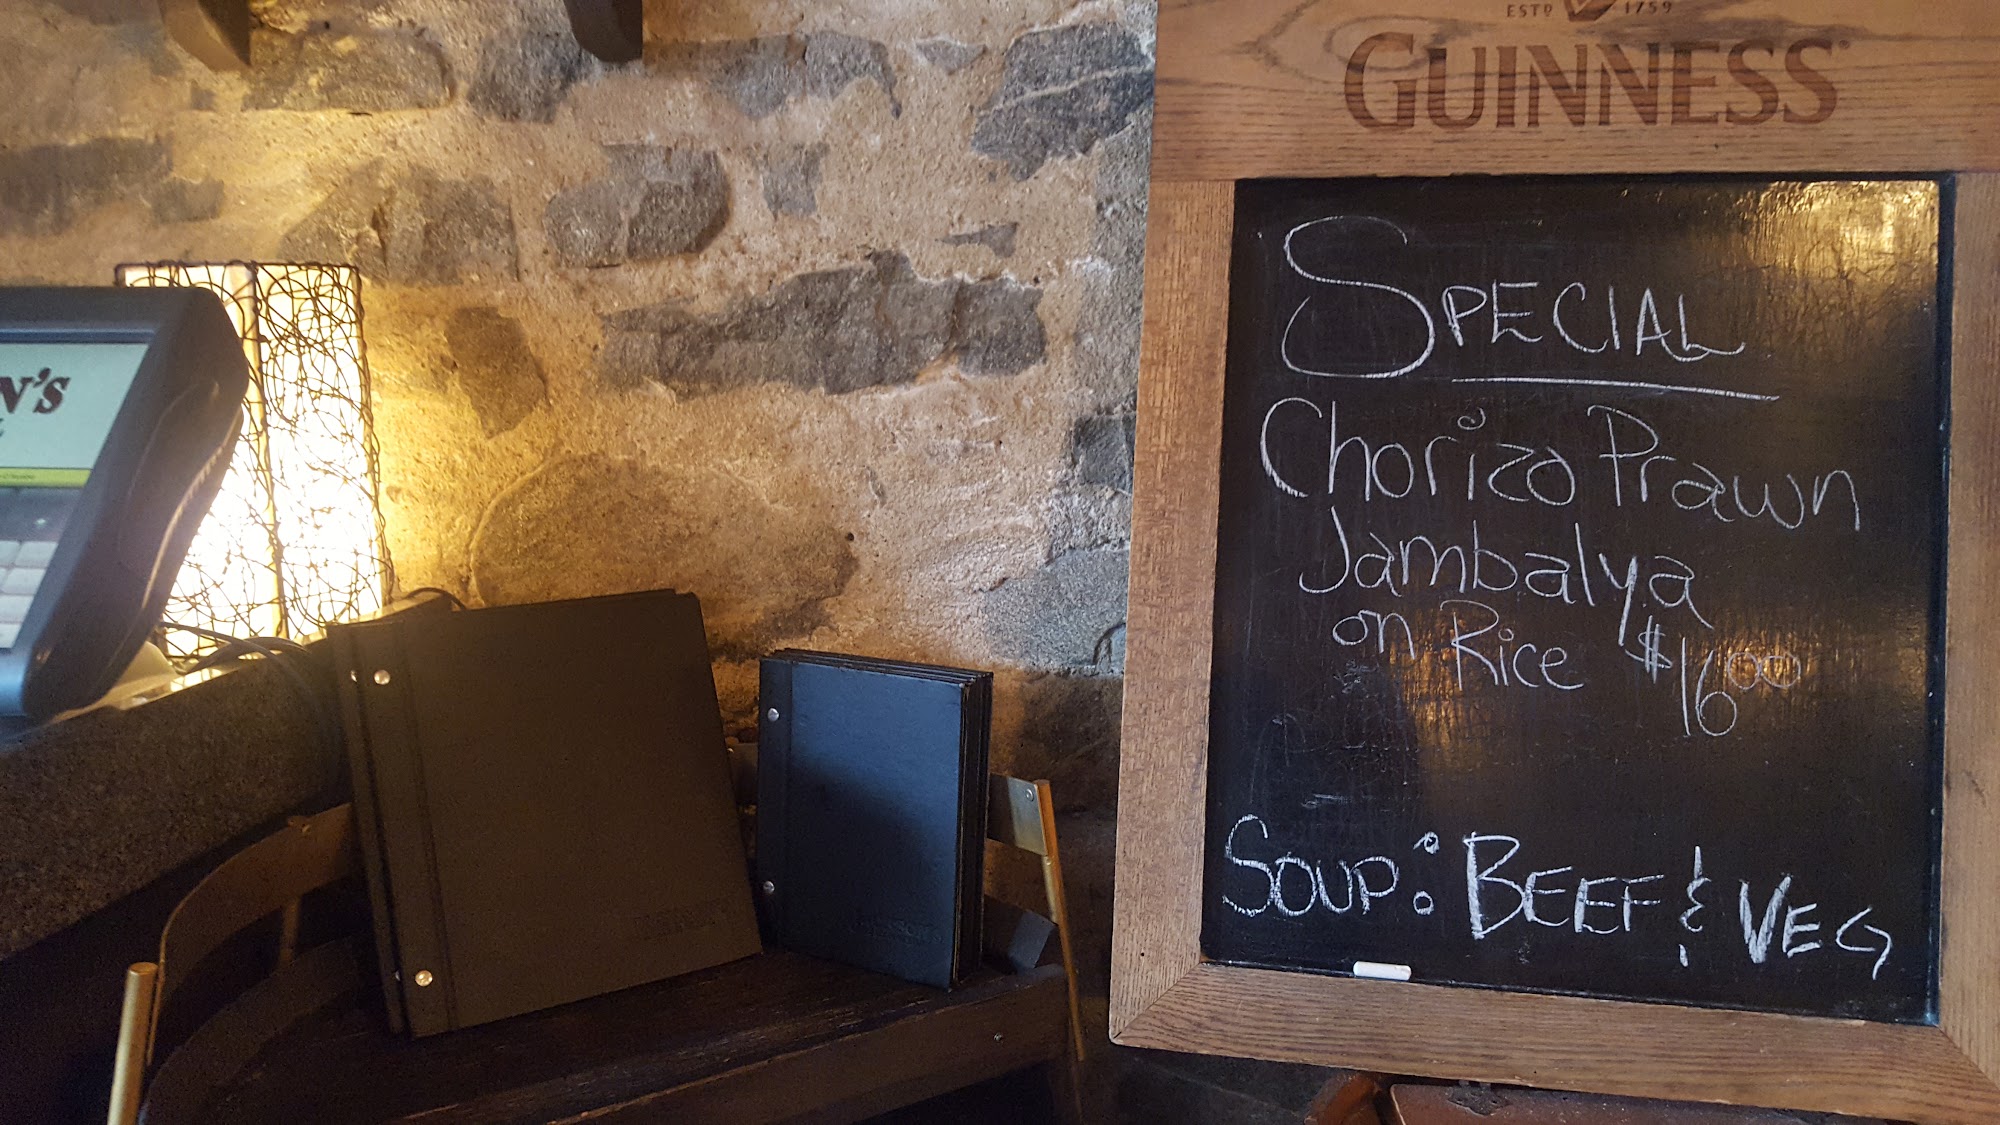 ESTD 1759
GUINNESS
SPECIAL
Chorizo Prawn
Jambalya
on Rice $16.00
SOUP: BEEF & VEG
N'S